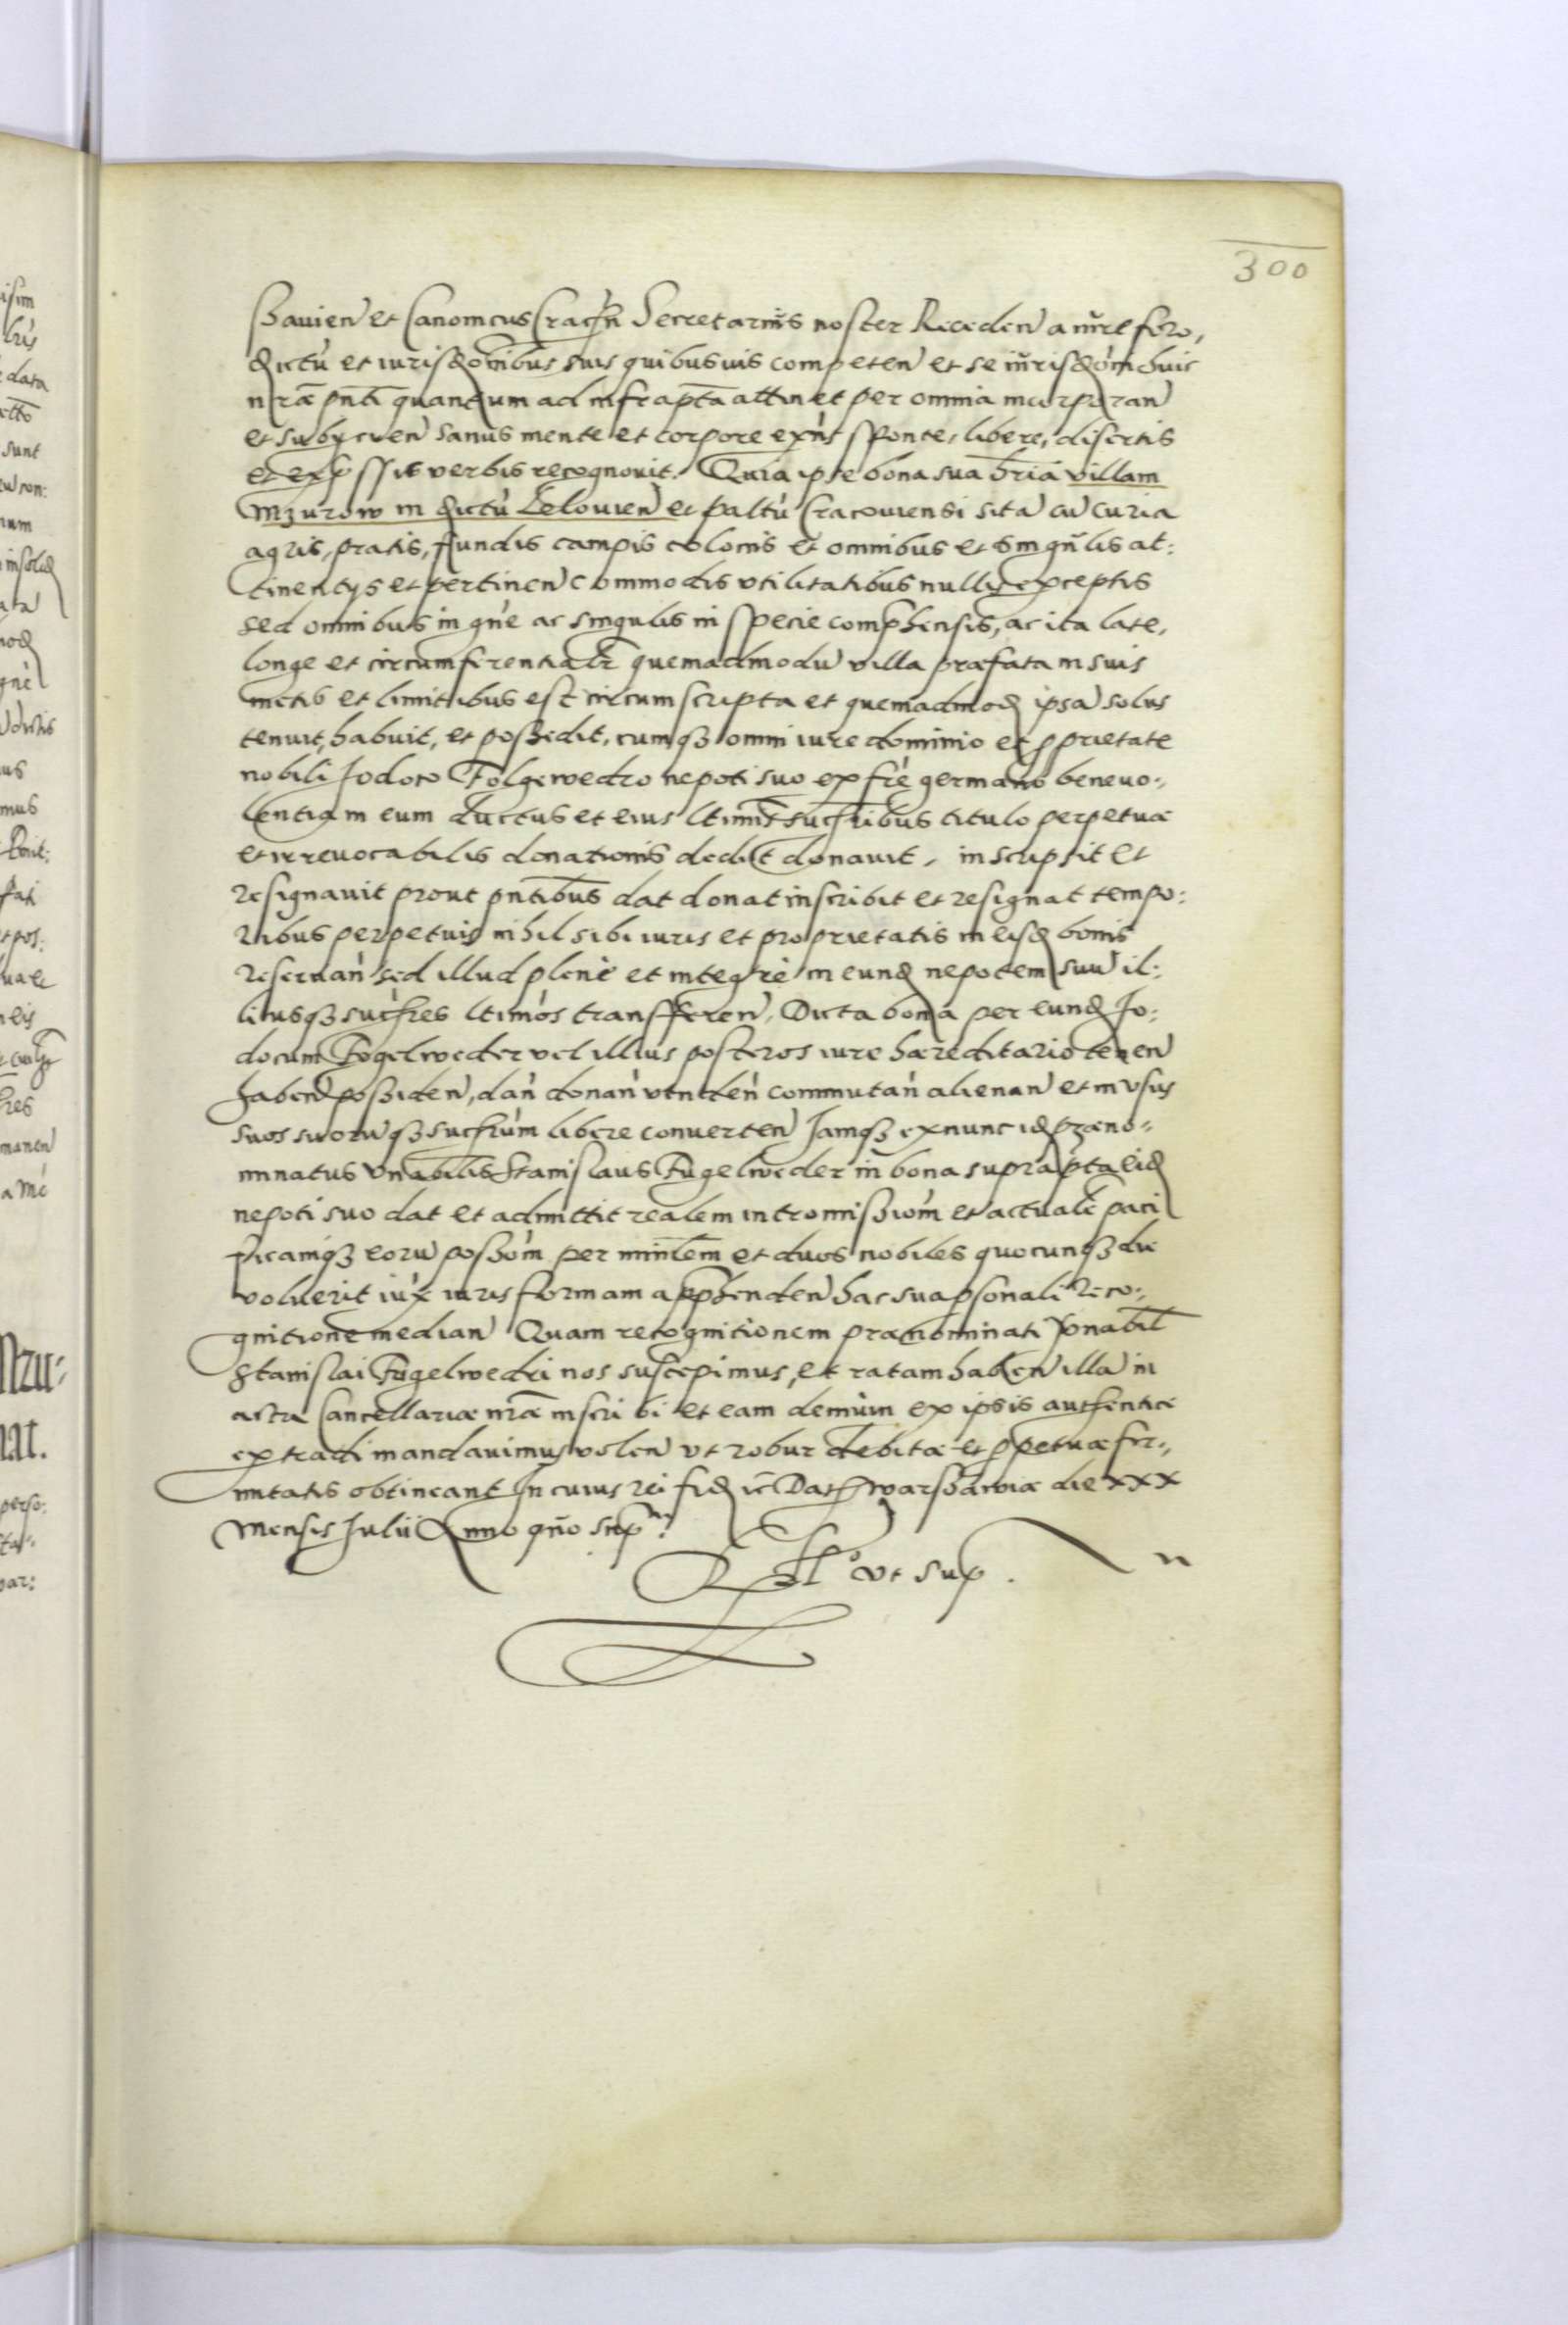 300
shavien et Canonicus Cracovn Secretarius noster Receden a iure foro,
districtu et iurisdonibus suis quibusuis competen et se iurisdoni huic
nrae pnti quantum ad infrapta attin et per omnia incorporan
et subycien sanus mente et corpore exns sponte, libere, disertis
et expssis verbis recognouit. Quia ipse bona sua hria villam
Mzurow in distu Leloviens et paltu Cracoviensi sita cu curia
agris, pratis, fundis campis colonis et omnibus et singulis at:
tinentys et pertinen commodis vtilitatibus nullis exceptis
sed omnibus in gne ac singulis in specie comprehensis, ac ita late,
longe et circumferentialr quemadmodu villa praefata in suis
metis et limitibus est circumscripta et quemadmod ipsa solus
tenuit, habuit, et possedit, cumq omni iure dominio et pprietate
nobili Jodoco Folgewedro nepoti suo ex fre germano beneuo:
lentia in eum ductus et eius ltimis succribus titulo perpetuae
et irreuocabilis donationis dedit donauit, inscripsit et
resignauit prout pntibus dat donat inscribit et resignat tempo:
ribus perpetuis nihil sibi iuris et proprietatis in eisd bonis
reseruan sed illud plene et integre in eund nepotem suu il:
liusq succres ltimos transfferen, Dicta bona per eund Jo:
docum Fogelweder vel illius posteros iure haereditario tenen
haben possiden, dan donan venden commutan alienan et in vsus
suos suoruq succrum libere conuerten Jamq ex nunc id praeno:
minatus vnabilis Stanislaus Fugelweder in bona suprapta eid
nepoti suo dat et admittit realem intromissiom et actuale paci
ficamq eoru possom per minlem et duos nobiles quocunq die
voluerit iux iuris formam apphenden hac sua psonali reco:
gnitione median Quam recognitionem praenominati vnabil
Stanislai Fugelwedri nos suscepimus, et ratam haben illa in
acta Cancellariae nrae inscribi et eam demum ex ipsis authentice
extradi mandauimus volen vt robur debitae et ppetuae fir:
mitatis obtineant In cuius rei fid ic Dat Warschawiae die XXX
Mensis Julii Anno quo sup
Rl vt sup.